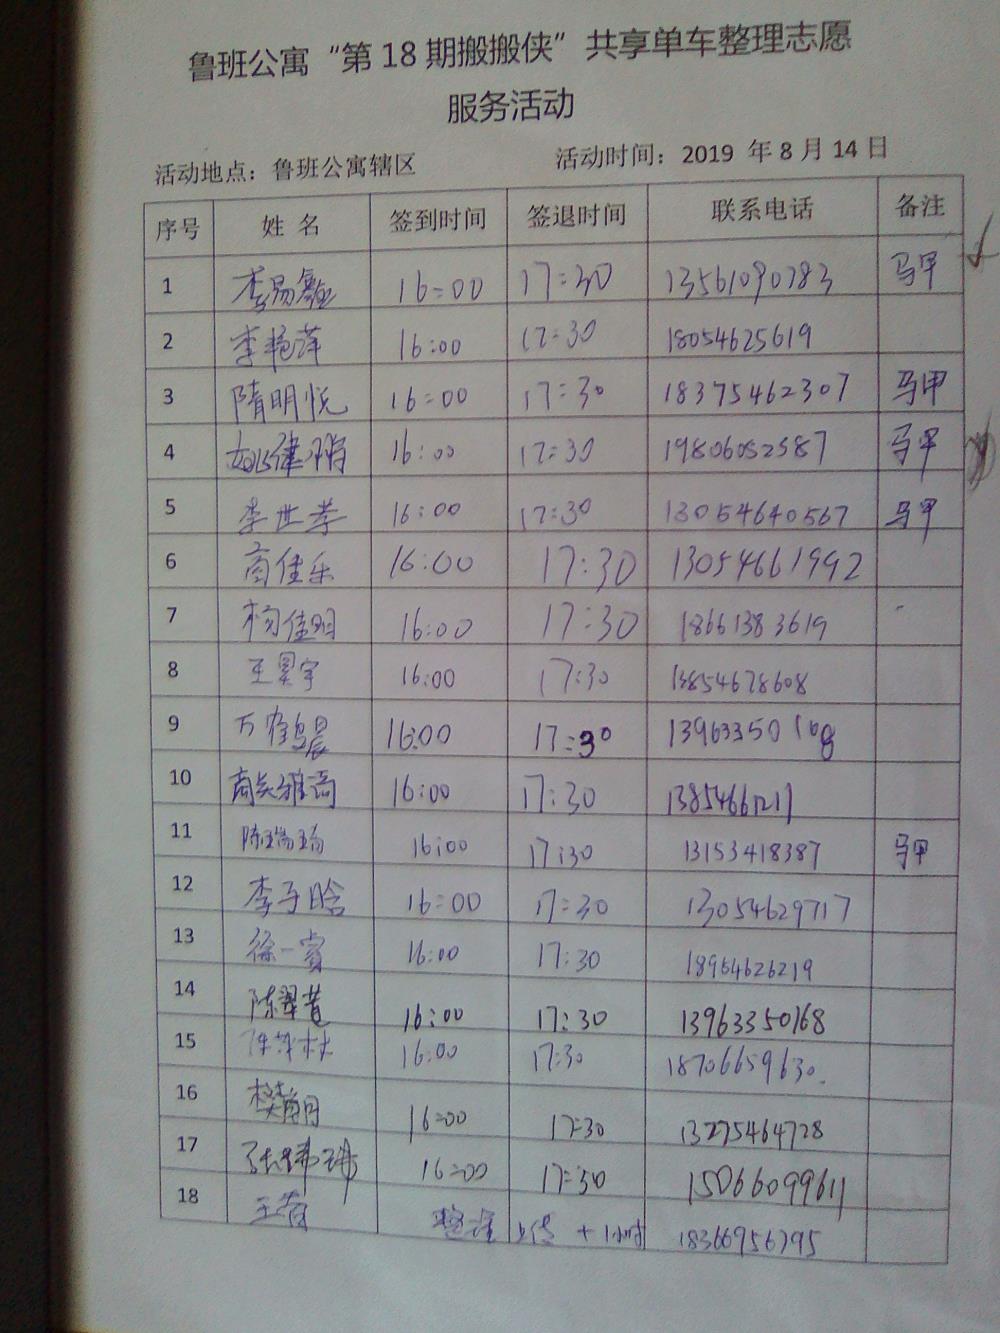 鲁班公寓“第 18 期搬搬侠”共享单车整理志愿
服务活动
活动地点：鲁班公寓辖区 活动时间：2019 年 8 月 14 日
序号 姓 名 签到时间 签退时间 联系电话 备注
1 李易 16:00 17:30 13561090783 马甲
2 李艳萍 16:00 17:30 18054625619
3 隋明悦 16:00 17:30 18375462307 马甲
4 16:00 17:30 19806082587 马甲
5 李世孝 16:00 17:30 13054640567 马甲
6 商佳乐 16:00 17:30 13054661992
7 杨佳明 16:00 17:30 18661383619
8 王昊宇 16:00 17:30 13854678608
9 万 晨 16:00 17:30 13963350168
10 16:00 17:30 13854661211
11 陈瑞 16:00 17:30 13153418387 马甲
12 李子晗 16:00 17:30 13054629717
13 徐一宾 16:00 17:30 18954626219
14 陈 16:00 17:30 13963350168
15 16:00 17:30 18706659630
16 樊 16:00 17:30 13275464728
17 张 16:00 17:30 15066099611
18 王 整理 上传 +1小时 18366956795